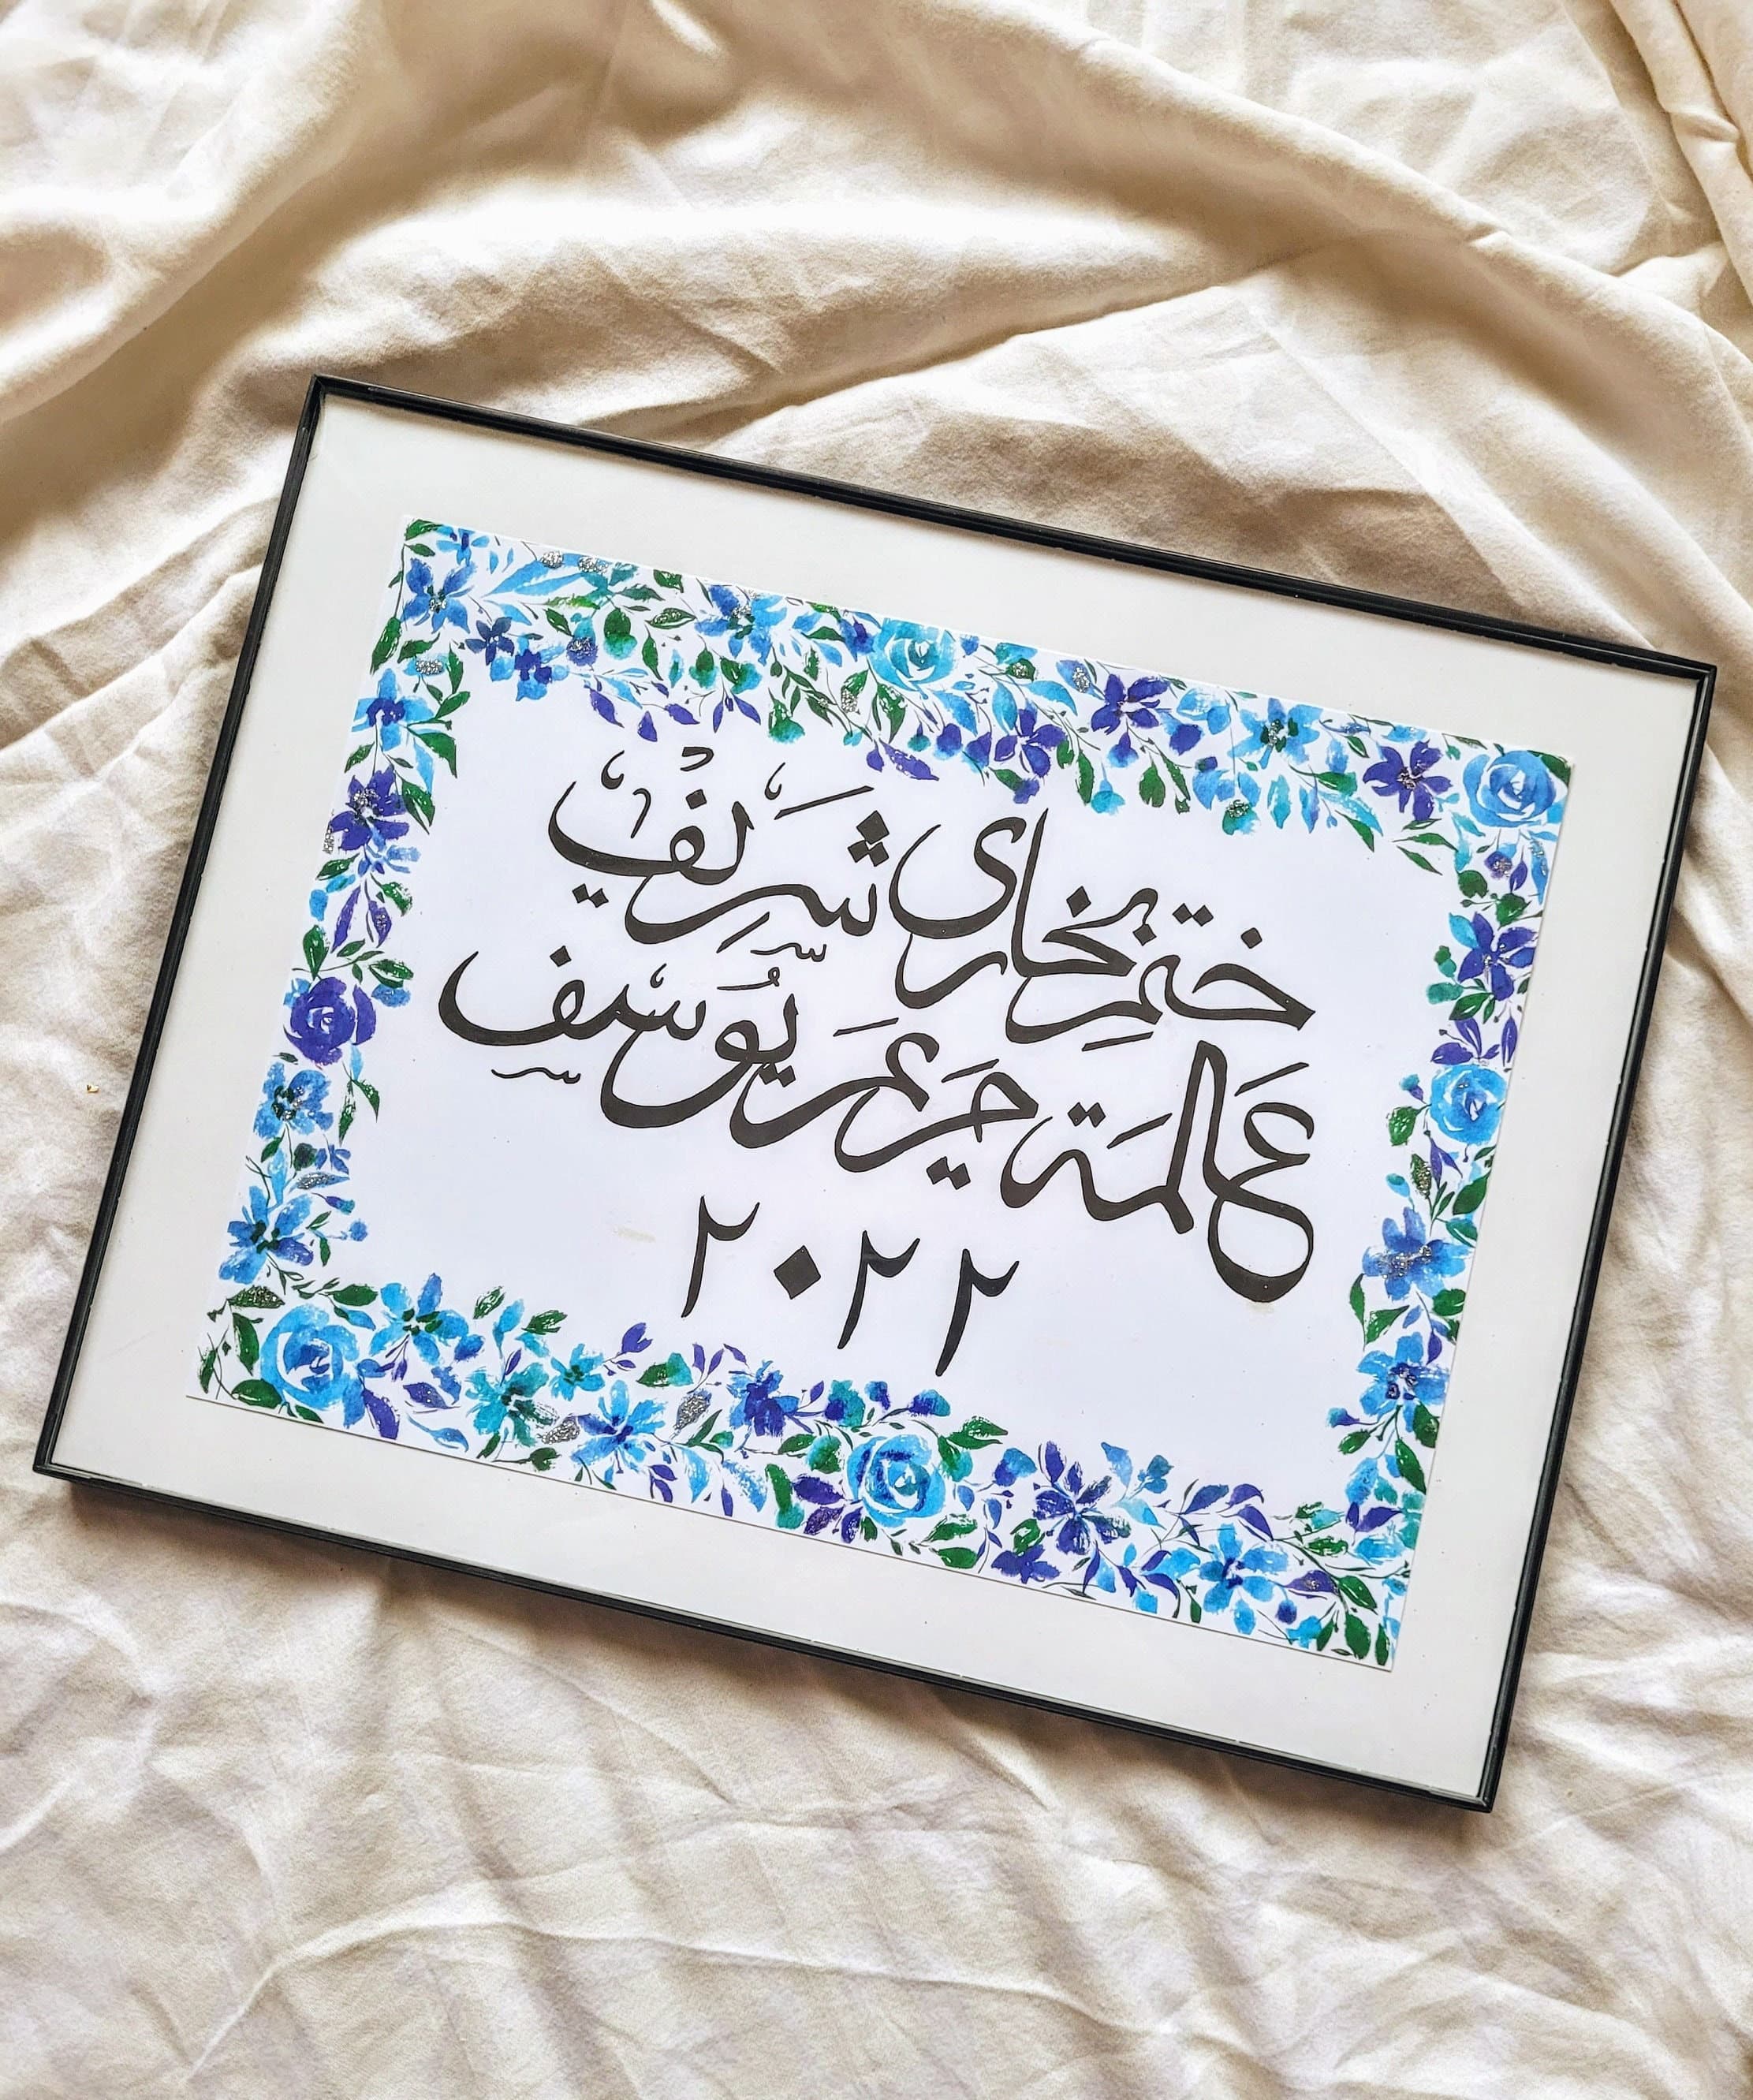 ختم بخاری شریف
عالمة مریم یُوسف
٢٠٢٢